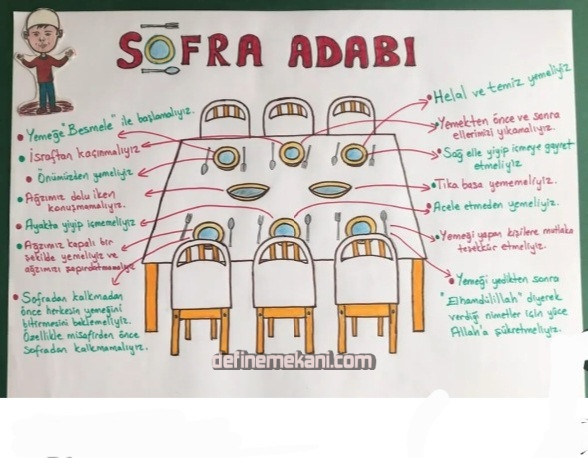 SOFRA ADABI
Yemeğe "Besmele" ile başlamalıyız.
İsraftan kaçınmalıyız
Önümüzden yemeliyiz
Ağzımız dolu iken
konuşmamalıyız.
Ayakta yiyip içmemeliyiz
Ağzımız kapalı bir
şekilde yemeliyiz ve
ağzımızı şapırdatmamalıyız
Sofradan kalkmadan
önce herkesin yemeğini
bitirmesini beklemeliyiz.
Özellikle misafirden önce
sofradan kalkmamalıyız.
Helal ve temiz yemeliyiz
Yemekten önce ve sonra
ellerimizi yıkamalıyız.
Sağ elle yiyip içmeye gayret
etmeliyiz
Tıka basa yememeliyiz.
Acele etmeden yemeliyiz.
Yemeği yapan kişilere mutlaka
teşekkür etmeliyiz.
Yemeği yedikten sonra
"Elhamdülillah" diyerek
verdiği nimetler için yüce
Allah'a şükretmeliyiz.
definemekani.com